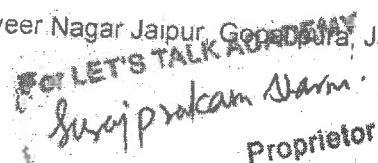 veer Nagar Jaipur, Gopalpura, J
For LET'S TALK ACADEMY
Surajprakash Sharm.
Proprietor